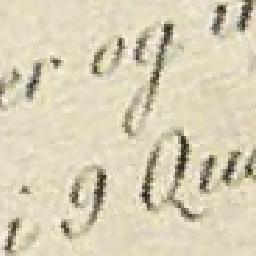 er og
i 9 Qu